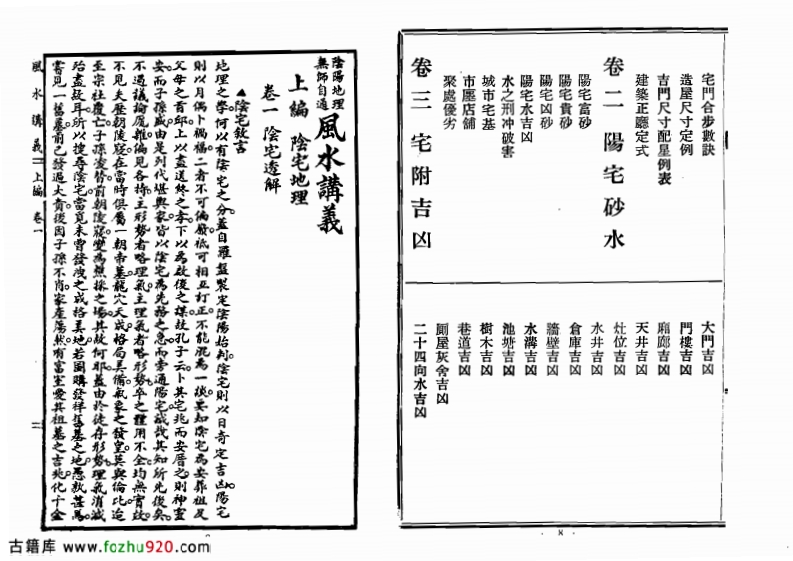 宅門合步數訣
造屋尺寸定例
吉門尺寸配星例表
建築正廳定式
卷二 陽宅砂水
陽宅富砂
陽宅貴砂
陽宅凶砂
陽宅水吉凶
水之刑冲破害
城市宅基
市廛店舖
聚處優劣
卷三 宅附吉凶
大門吉凶
門樓吉凶
廂廊吉凶
天井吉凶
灶位吉凶
水井吉凶
倉庫吉凶
牆壁吉凶
水溝吉凶
池塘吉凶
樹木吉凶
巷道吉凶
厠屋灰舍吉凶
二十四向水吉凶
8
陰陽地理
無師自通
風水講義
上編 陰宅地理
卷一 陰宅透解
▲陰宅敘言
地理之學。何以有陰宅之分。蓋自羅盤製定陰陽始判。陰宅則以日奇定吉凶。陽宅
則以月偶卜禍福。二者不可偏廢。祗可相互訂正。不能混為一談。要知陰宅為安葬祖及
父母之首邱。上以盡送終之孝。下以為啟後之謀。故孔子云。卜其宅兆而安厝之。則神靈
安而子孫盛。由是列代堪輿家皆以陰宅為先務之急。而旁通陽宅。誠哉其知所先後矣。
不過議論厖雜。偏見各持。主形勢者略理氣。主理氣者略形勢。卒之體用不全。均無實效。
不見夫歷朝陵寢。在當時俱屬一朝帝墓。龍穴天成。格局具備。氣象之發皇。莫與倫比。迨
至宗社覆亡。子孫凌替。前朝陵寢。變為樵採之場。其故何耶。蓋由於徒存形勢。理氣消滅
殆盡故耳。所以搜尋陰宅。當覓未曾發洩之成格美地。若圖購發祥舊墓之地。愚孰甚焉。
嘗見一舊墓。前已發過大貴。後因子孫不肖。家產蕩然。有富室愛其祖墓之吉兆。化千金
風水講義 上編 卷一
二
古籍库 www.fozhu920.com